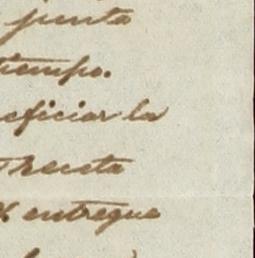 junta
tiempo.
eficiar la
Receta
entregue